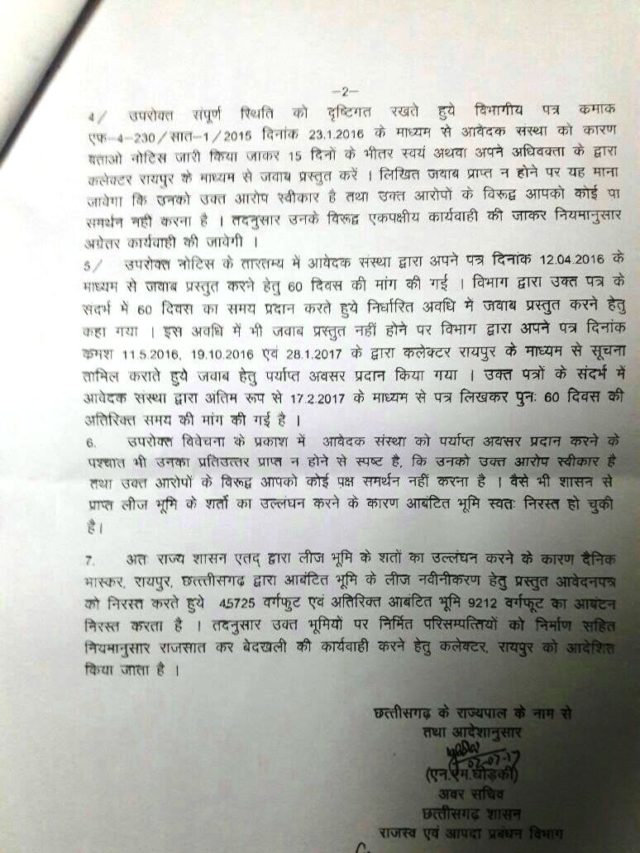 –2–
4/ उपरोक्त संपूर्ण स्थिति को दृष्टिगत रखते हुये विभागीय पत्र कमाक
एफ–4–230/सात–1/2015 दिनांक 23.1.2016 के माध्यम से आवेदक संस्था को कारण
बताओ नोटिस जारी किया जाकर 15 दिनों के भीतर स्वयं अथवा अपने अधिवक्ता के द्वारा
कलेक्टर रायपुर के माध्यम से जवाब प्रस्तुत करें । लिखित जवाब प्राप्त न होने पर यह माना
जावेगा कि उनको उक्त आरोप स्वीकार है तथा उक्त आरोपों के विरूद्ध आपको कोई पा
समर्थन नही करना है । तदनुसार उनके विरूद्ध एकपक्षीय कार्यवाही की जाकर नियमानुसार
अग्रेतर कार्यवाही की जावेगी ।
5/ उपरोक्त नोटिस के तारतम्य में आवेदक संस्था द्वारा अपने पत्र दिनांक 12.04.2016 के
माध्यम से जवाब प्रस्तुत करने हेतु 60 दिवस की मांग की गई । विभाग द्वारा उक्त पत्र के
संदर्भ में 60 दिवस का समय प्रदान करते हुये निर्धारित अवधि मे जवाब प्रस्तुत करने हेतु
कहा गया । इस अवधि में भी जवाब प्रस्तुत नहीं होने पर विभाग द्वारा अपने पत्र दिनांक
कमश 11.5.2016, 19.10.2016 एवं 28.1.2017 के द्वारा कलेक्टर रायपुर के माध्यम से सूचना
तामिल कराते हुये जवाब हेतु पर्याप्त अवसर प्रदान किया गया । उक्त पत्रों के संदर्भ में
आवेदक संस्था द्वारा अंतिम रूप से 17.2.2017 के माध्यम से पत्र लिखकर पुनः 60 दिवस की
अतिरिक्त समय की मांग की गई है ।
6. उपरोक्त विवेचना के प्रकाश में आवेदक संस्था को पर्याप्त अवसर प्रदान करने के
पश्चात भी उनका प्रतिउत्तर प्राप्त न होने से स्पष्ट है, कि उनको उक्त आरोप स्वीकार है
तथा उक्त आरोपों के विरूद्ध आपको कोई पक्ष समर्थन नहीं करना है । वैसे भी शासन से
प्राप्त लीज भूमि के शर्तो का उल्लंघन करने के कारण आबंटित भूमि स्वतः निरस्त हो चुकी
है।
7. अत राज्य शासन एतद् द्वारा लीज भूमि के शर्तो का उल्लंघन करने के कारण दैनिक
भास्कर, रायपुर, छत्तीसगढ़ द्वारा आबंटित भूमि के लीज नवीनीकरण हेतु प्रस्तुत आवेदनपत्र
को निरस्त करते हुये 45725 वर्गफुट एवं अतिरिक्त आबंटित भूमि 9212 वर्गफूट का आबंटन
निरस्त करता है । तदनुसार उक्त भूमियों पर निर्मित परिसम्पत्तियों को निर्माण सहित
नियमानुसार राजसात कर बेदखली की कार्यवाही करने हेतु कलेक्टर, रायपुर को आदेशित
किया जाता है ।
छत्तीसगढ़ के राज्यपाल के नाम से
तथा आदेशानुसार
02-07-17
(एन.एम.घोड़की)
अवर सचिव
छत्तीसगढ़ शासन
राजस्व एवं आपदा प्रबंधन विभाग